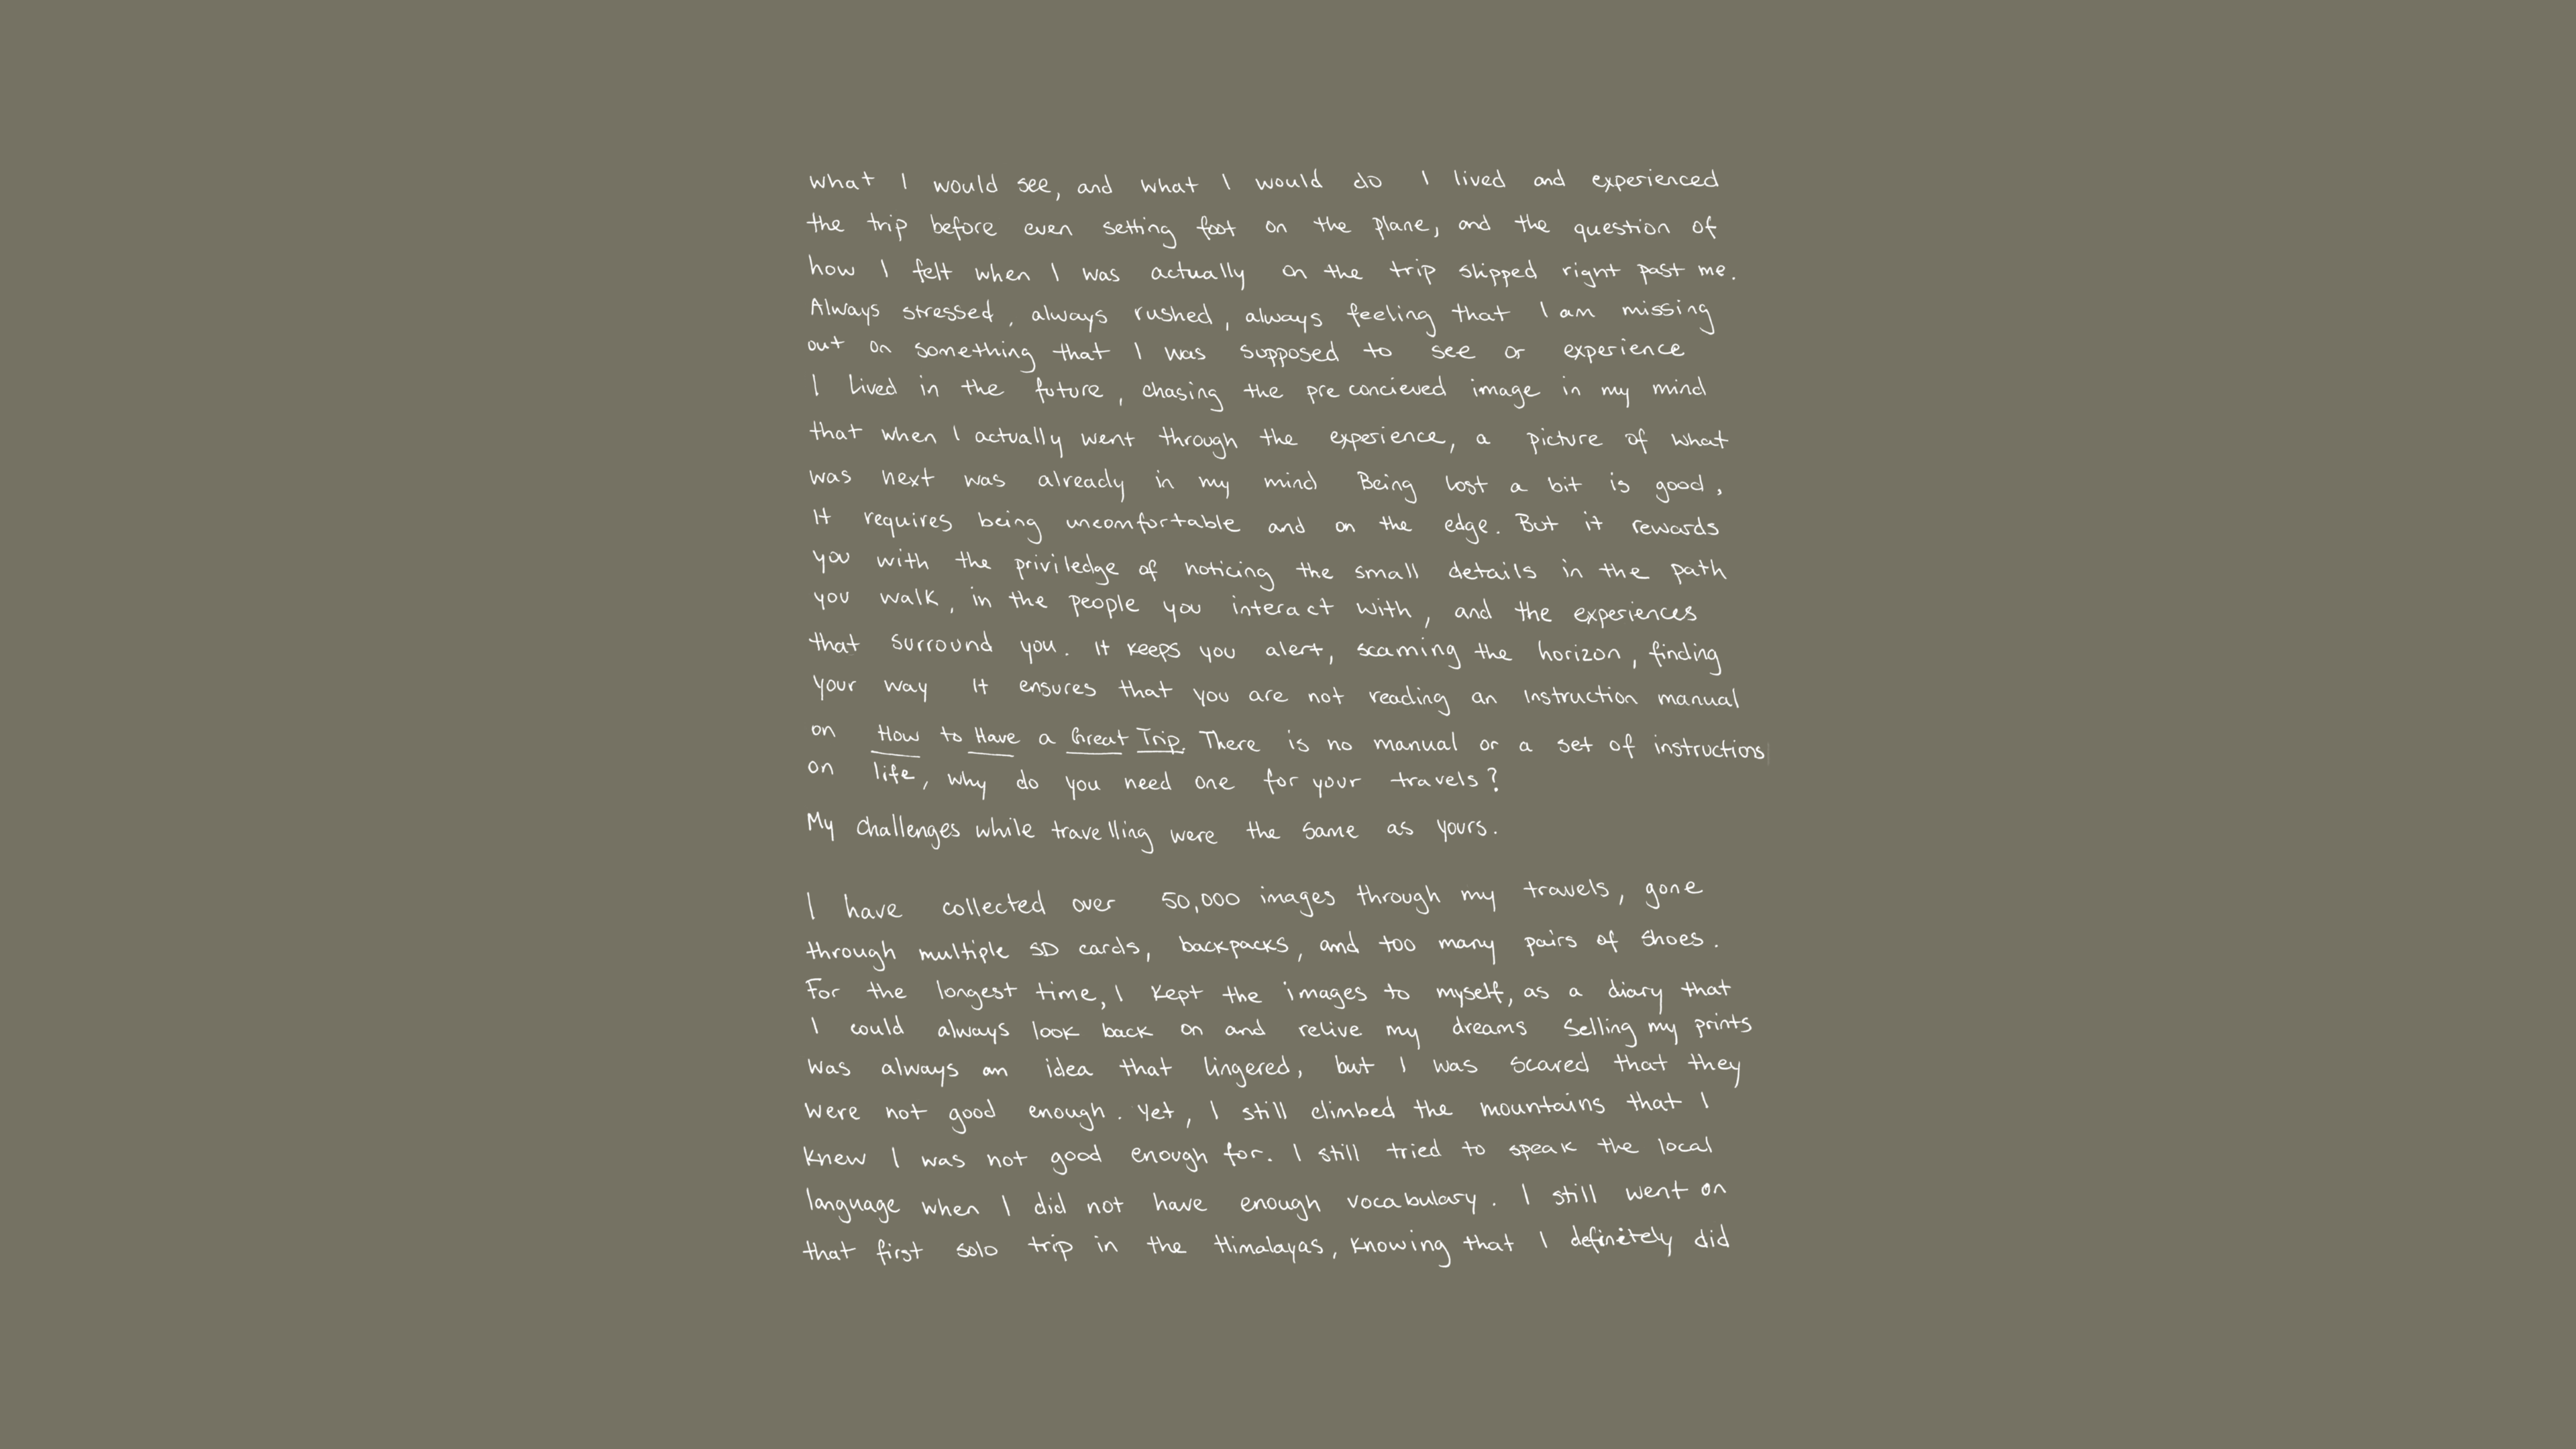 what I would see, and what I would do I lived and experienced
the trip before even setting foot on the plane, and the question of
how I felt when I was actually on the trip slipped right past me.
Always stressed, always rushed, always feeling that I am missing
out on something that I was supposed to see or experience
I lived in the future, chasing the pre concieved image in my mind
that when I actually went through the experience, a picture of what
was next was already in my mind Being lost a bit is good,
It requires being uncomfortable and on the edge. But it rewards
you with the priviledge of noticing the small details in the path
you walk, in the people you interact with, and the experiences
that surround you. It keeps you alert, scanning the horizon, finding
your way It ensures that you are not reading an instruction manual
on How to Have a Great Trip. There is no manual or a set of instructions
on life, why do you need one for your travels?
My challenges while travelling were the same as yours.
I have collected over 50,000 images through my travels, gone
through multiple SD cards, backpacks, and too many pairs of shoes.
For the longest time, I kept the images to myself, as a diary that
I could always look back on and relive my dreams Selling my prints
was always an idea that lingered, but I was scared that they
were not good enough. Yet, I still climbed the mountains that I
knew I was not good enough for. I still tried to speak the local
language when I did not have enough vocabulary. I still went on
that first solo trip in the Himalayas, knowing that I definetely did